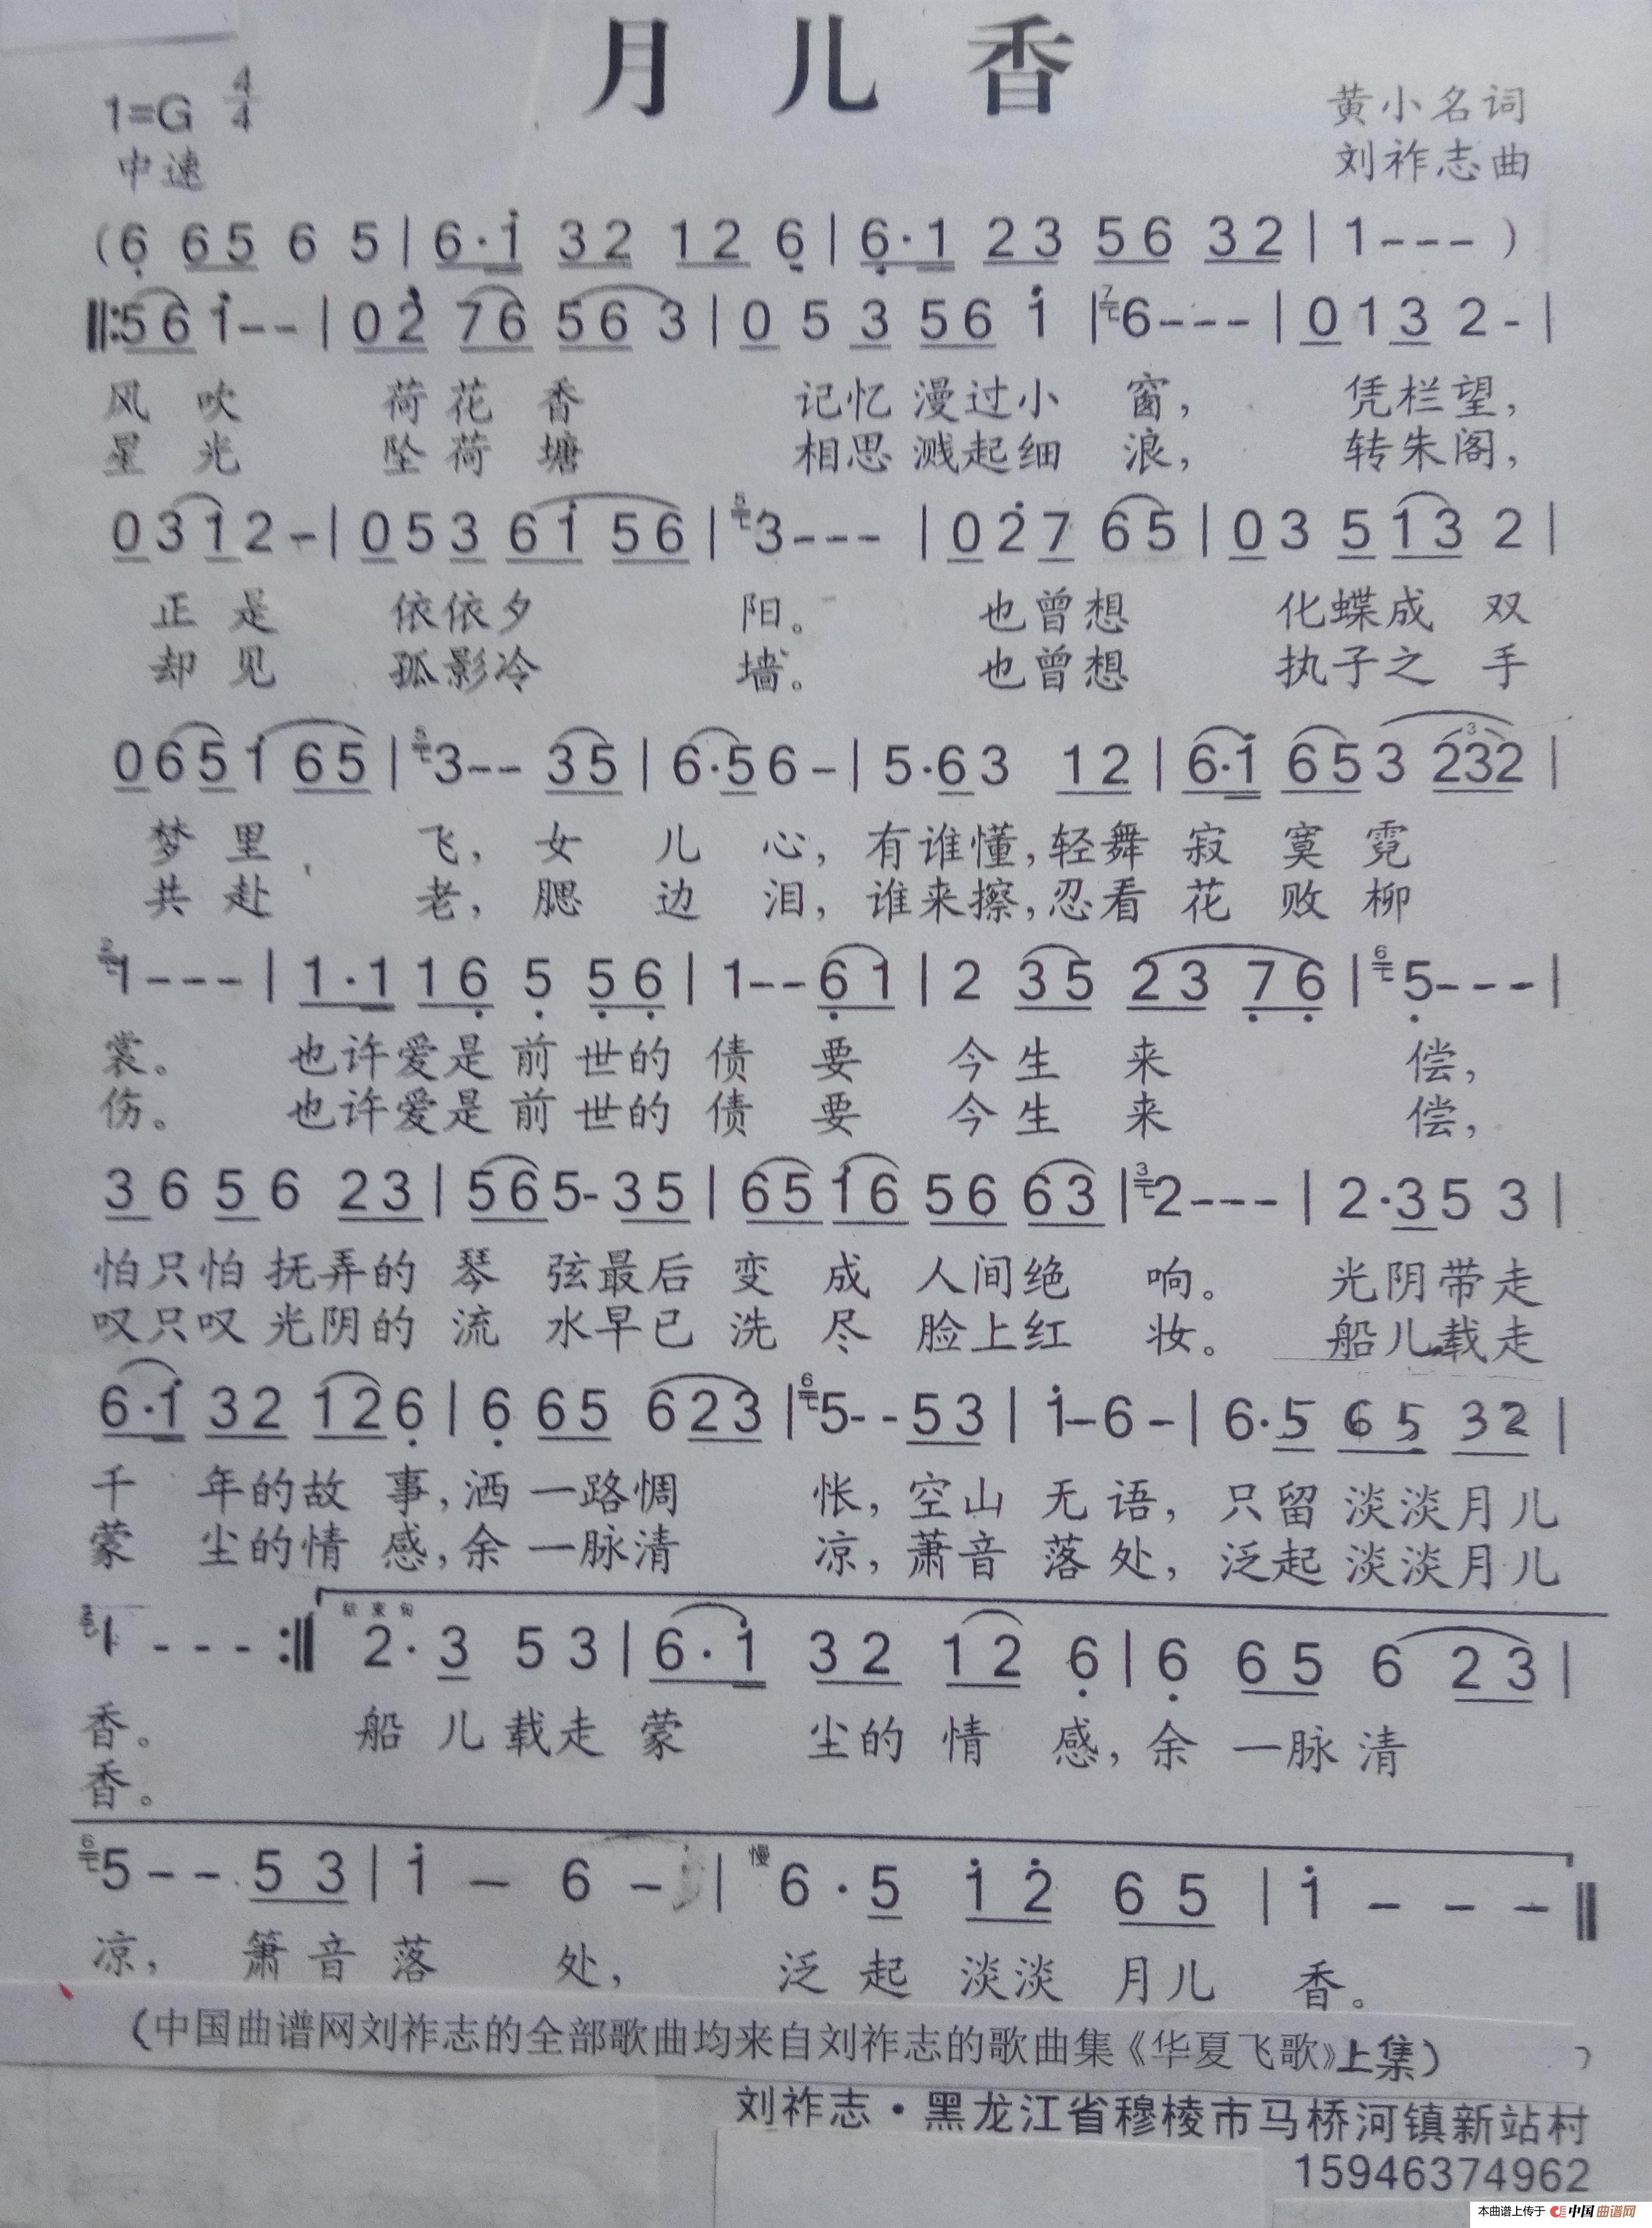 月儿香
1=G 4/4
黄小名词
中速
刘祚志曲
(6 65 6 5 | 6·1 32 12 6 | 6·1 23 56 32 | 1--- )
‖:56 1-- | 02 76 56 3 | 0 5 3 56 1 | 7 6--- | 013 2- |
风吹 荷花香 记忆漫过小窗, 凭栏望,
星光 坠荷塘 相思溅起细浪, 转朱阁,
0312- | 053 61 56 | 5 3--- | 027 65 | 03 513 2 |
正是 依依夕 阳。 也曾想 化蝶成双
却见 孤影冷 墙。 也曾想 执子之手
065 1 65 | 5 3-- 35 | 6·56- | 5·63 12 | 6·1 65 3 3 232 |
梦里 飞, 女儿心, 有谁懂, 轻舞寂寞霓
共赴 老, 腮边泪, 谁来擦, 忍看花败柳
2 1--- | 1·1 16 5 56 | 1--61 | 2 35 23 76 | 6 5--- |
裳。 也许爱是前世的债 要 今生来 偿,
伤。 也许爱是前世的债 要 今生来 偿,
3 6 5 6 23 | 565-35 | 65 16 56 63 | 3 2--- | 2·35 3 |
怕只怕抚弄的琴 弦最后变成人间绝 响。 光阴带走
叹只叹光阴的流 水早已洗尽脸上红 妆。 船儿载走
6·1 32 126 | 6 65 623 | 6 5--53 | 1-6- | 6·5 65 32 |
千年的故事, 洒一路惆 怅, 空山无语, 只留淡淡月儿
蒙尘的情感, 余一脉清 凉, 萧音落处, 泛起淡淡月儿
2 1 --- :‖ 结束句 2·3 53 | 6·1 32 12 6 | 6 65 6 23 |
香。 船儿载走蒙 尘的情感, 余一脉清
香。
6 5--53 | 1 - 6 - | 慢 6·5 12 65 | 1 - - - ‖
凉, 箫音落 处, 泛起淡淡月儿香。
(中国曲谱网刘祚志的全部歌曲均来自刘祚志的歌曲集《华夏飞歌》上集)
刘祚志·黑龙江省穆棱市马桥河镇新站村
15946374962
本曲谱上传于 中国曲谱网